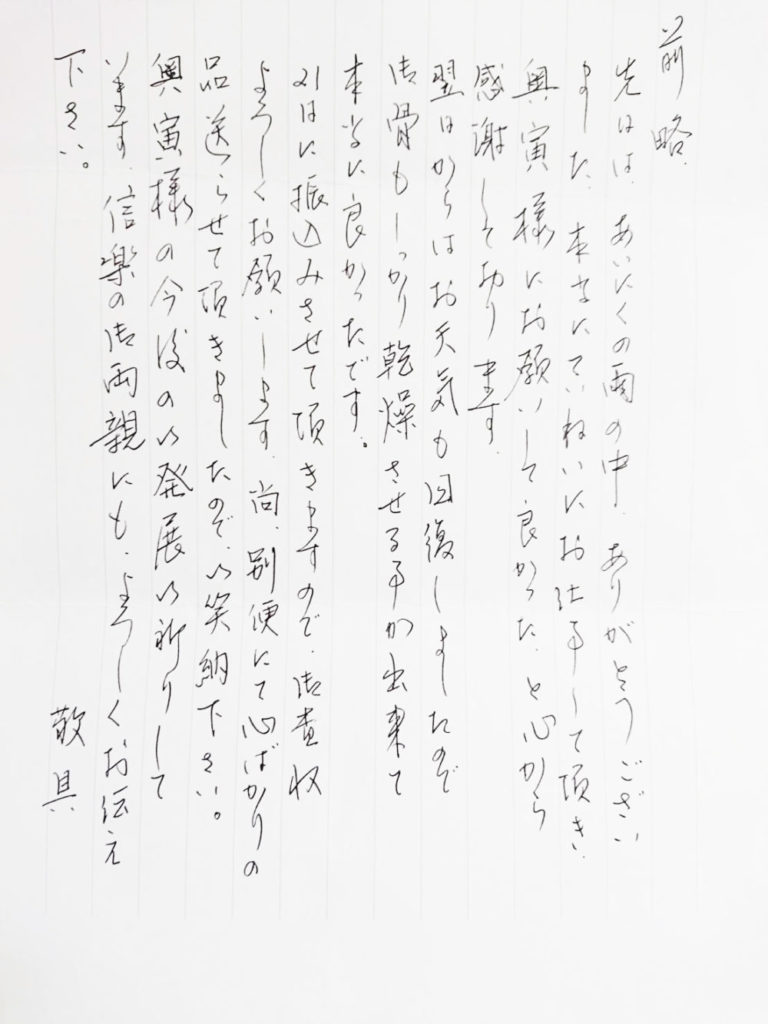 前略
先日は、あいにくの雨の中、ありがとうござい
ました。本当にていねいにお仕事して頂き、
奥寅様にお願いして良かった、と心から
感謝しております。
翌日からはお天気も回復しましたので
御骨もしっかり乾燥させる事が出来て
本当に良かったです。
21日に振込みさせて頂きますので、御査収
よろしくお願いします。尚、別便にて心ばかりの
品送らせて頂きましたので、ご笑納下さい。
奥寅様の今後のご発展ご祈りして
います。信楽の御両親にも、よろしくお伝え
下さい。
敬具